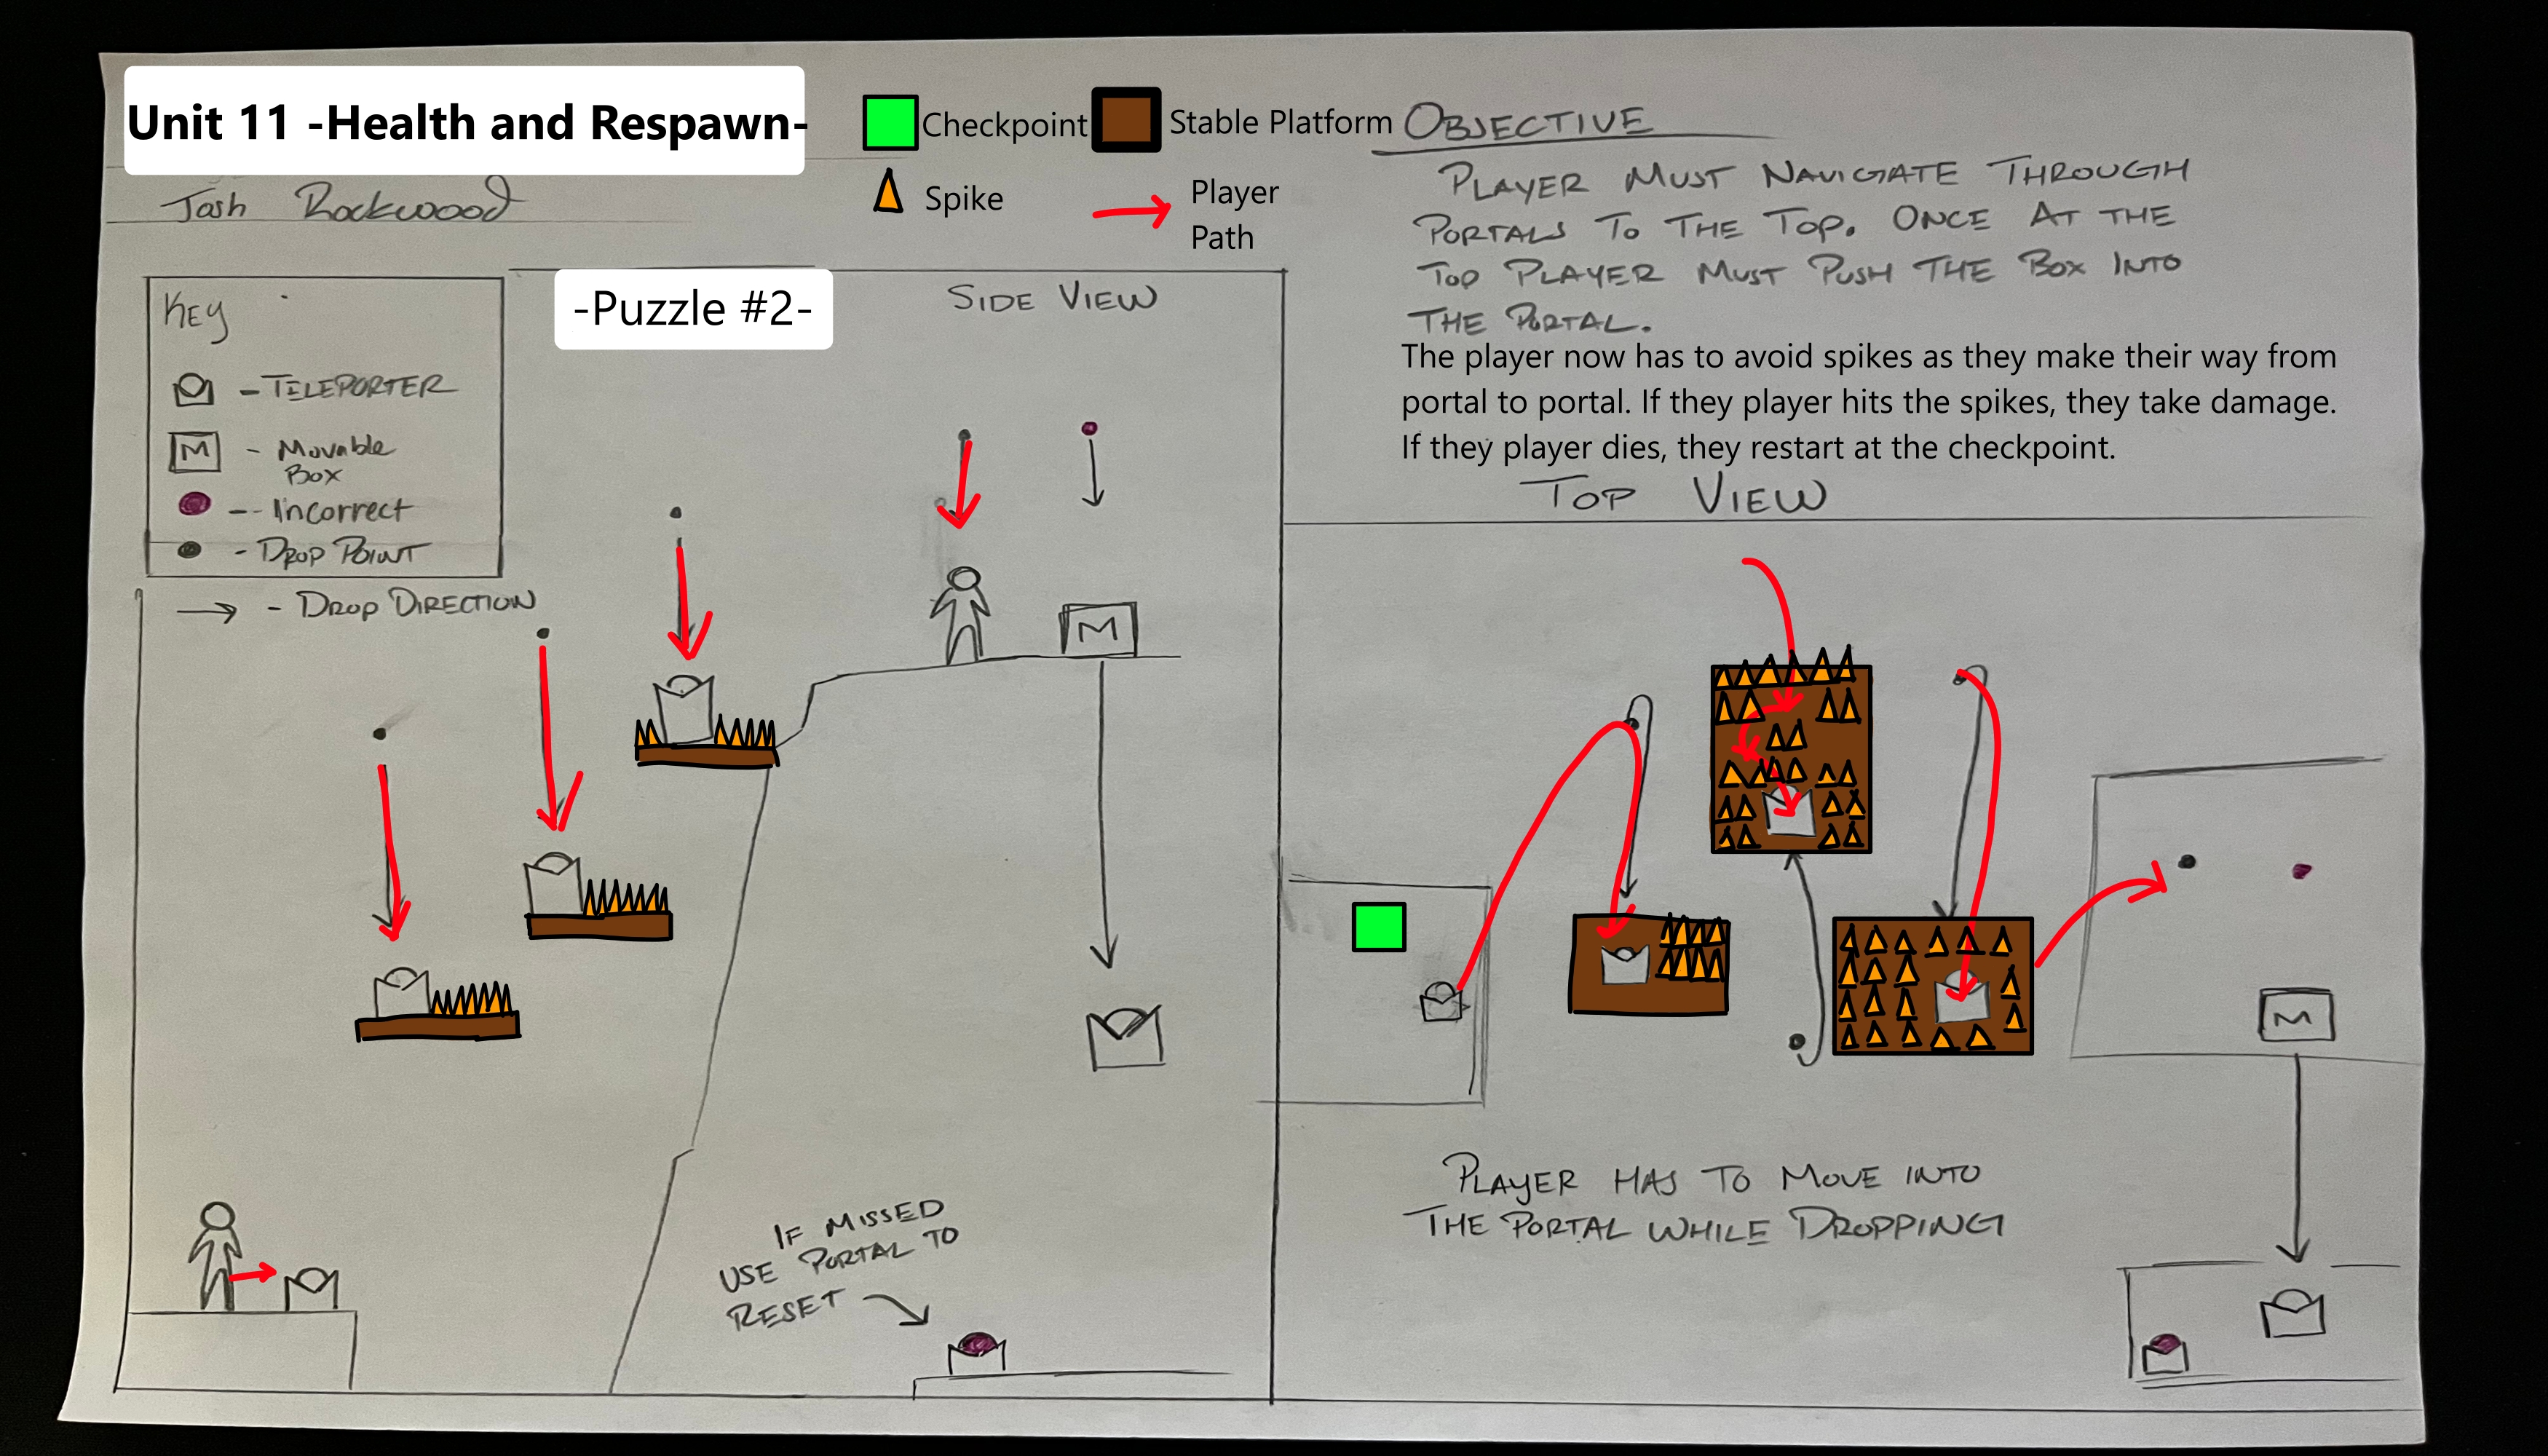 Unit 11 -Health and Respawn-
Josh Rockwood
Checkpoint
Stable Platform
Spike
Player
Path
OBJECTIVE
PLAYER MUST NAVIGATE THROUGH
PORTALS TO THE TOP. ONCE AT THE
TOP PLAYER MUST PUSH THE BOX INTO
THE PORTAL.
The player now has to avoid spikes as they make their way from
portal to portal. If they player hits the spikes, they take damage.
If they player dies, they restart at the checkpoint.
KEY
- TELEPORTER
M - Movable
Box
-- Incorrect
- DROP POINT
- DROP DIRECTION
-Puzzle #2-
SIDE VIEW
M
IF MISSED
USE PORTAL TO
RESET
TOP VIEW
M
PLAYER HAS TO MOVE INTO
THE PORTAL WHILE DROPPING